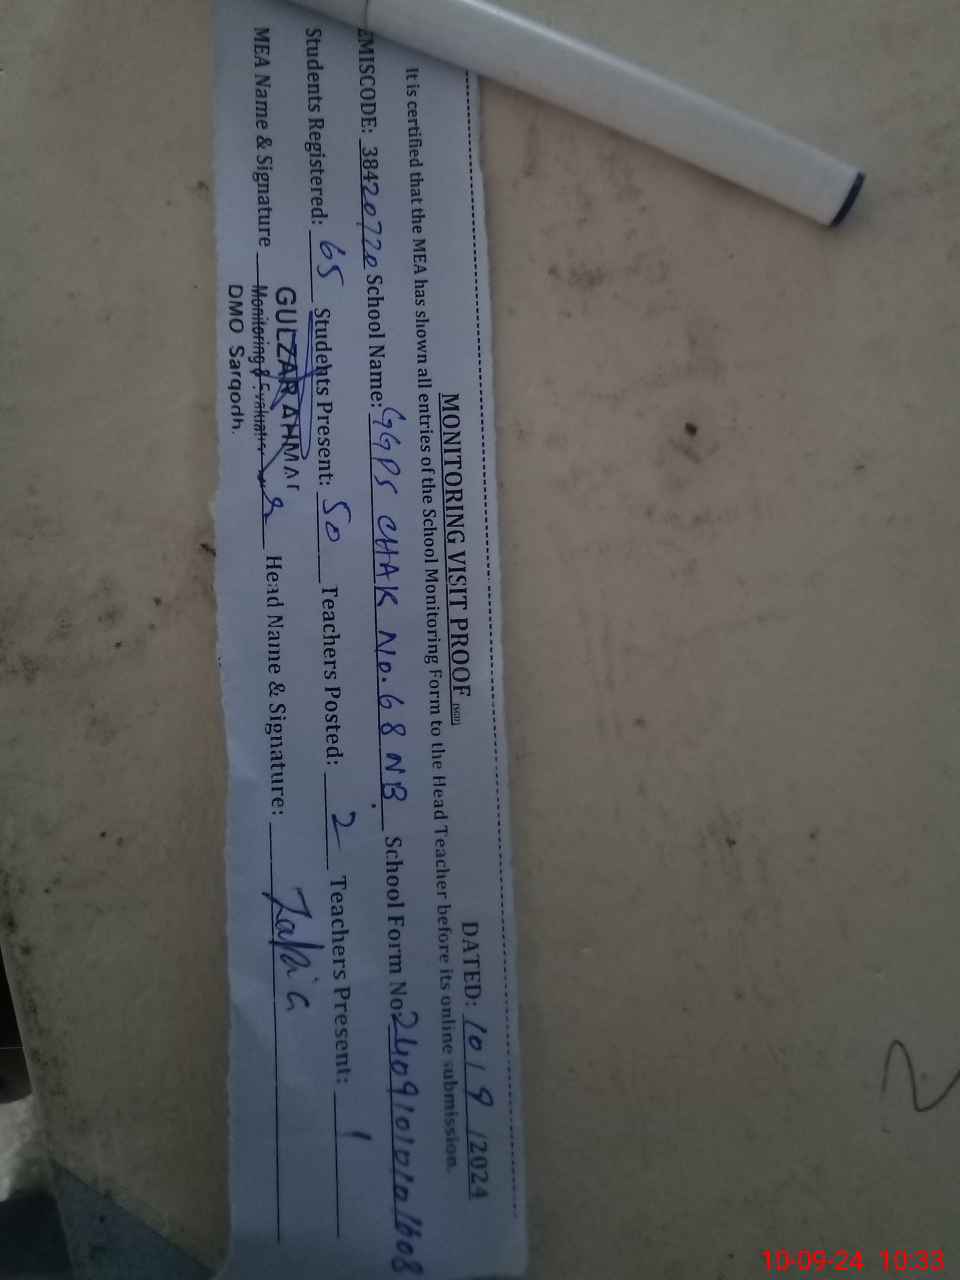 MONITORING VISIT PROOF DATED: 10/9/2024
It is certified that the MEA has shown all entries of the School Monitoring Form to the Head Teacher before its online submission.
EMISCODE: 38420720 School Name: GGPS CHAK No. 68 NB School Form No
Students Registered: 65 Students Present: 50 Teachers Posted: 2 Teachers Present: 1
MEA Name & Signature Head Name & Signature:
GULZAR AHMA
Monitoring &
DMO Sargodh.
10-09-24 10:33